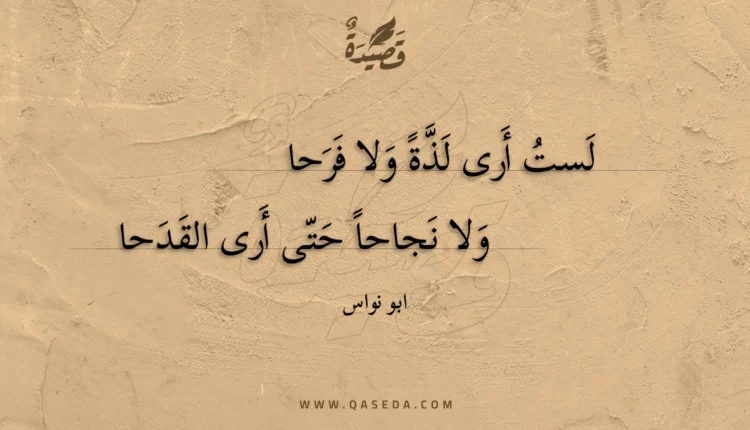 قَصِيدَةٌ
لَستُ أَرى لَذَّةً وَلا فَرَحا
وَلا نَجاحاً حَتّى أَرى القَدَحا
ابو نواس
WWW.QASEDA.COM